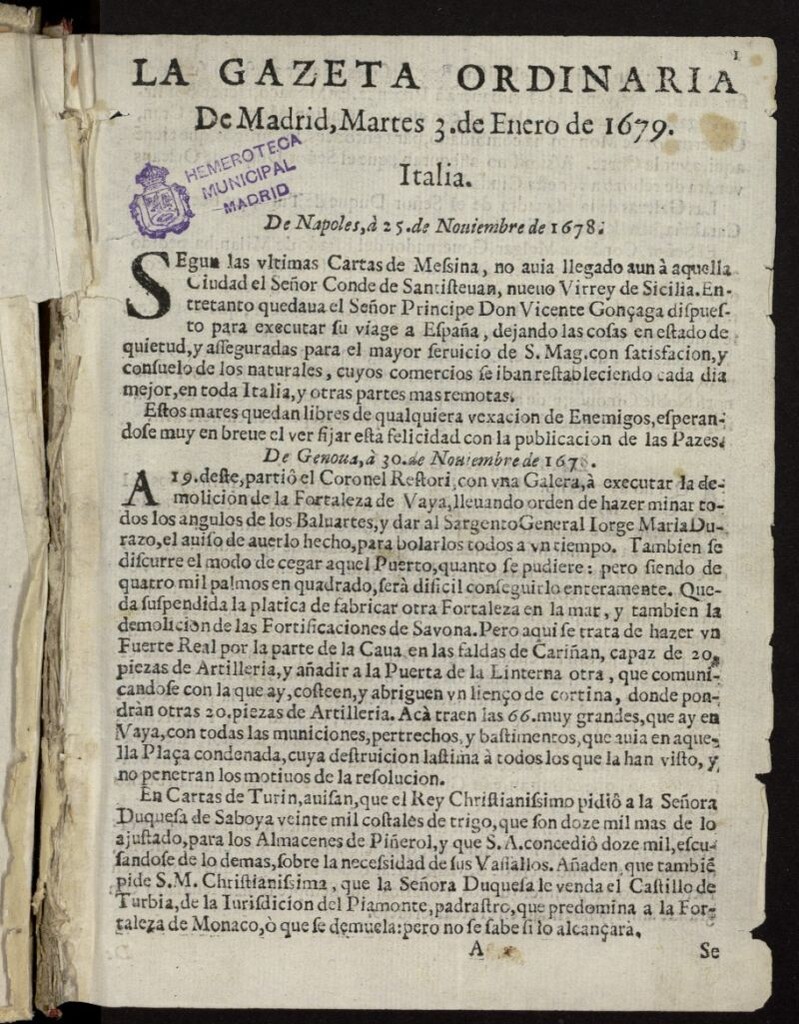 1
LA GAZETA ORDINARIA
De Madrid, Martes 3. de Enero de 1679.
HEMEROTECA
MUNICIPAL
MADRID
Italia.
De Napoles, à 25. de Nouiembre de 1678.
SEgun las vltimas Cartas de Messina, no auia llegado aun à aquella
Ciudad el Señor Conde de Santisteuan, nueuo Virrey de Sicilia. En-
tretanto quedaua el Señor Principe Don Vicente Gonçaga dispues-
to para executar su viage a España, dejando las cosas en estado de
quietud, y asseguradas para el mayor seruicio de S. Mag. con satisfacion, y
consuelo de los naturales, cuyos comercios se iban restableciendo cada dia
mejor, en toda Italia, y otras partes mas remotas.
Estos mares quedan libres de qualquiera vexacion de Enemigos, esperan-
dose muy en breue el ver fijar esta felicidad con la publicacion de las Pazes.
De Genoua, à 30. de Nouiembre de 1678.
A 19. deste, partiò el Coronel Restori, con vna Galera, à executar la de-
molicion de la Fortaleza de Vaya, lleuando orden de hazer minar to-
dos los angulos de los Baluartes, y dar al Sargento General Iorge Maria Du-
razo, el auiso de auerlo hecho, para bolarlos todos a vn tiempo. Tambien se
discurre el modo de cegar aquel Puerto, quanto se pudiere: pero siendo de
quatro mil palmos en quadrado, serà dificil conseguirlo enteramente. Que-
da suspendida la platica de fabricar otra Fortaleza en la mar, y tambien la
demolicion de las Fortificaciones de Savona. Pero aqui se trata de hazer vn
Fuerte Real por la parte de la Caua en las faldas de Cariñan, capaz de 20.
piezas de Artilleria, y añadir a la Puerta de la Linterna otra, que comuni-
candose con la que ay, costeen, y abriguen vn lienço de cortina, donde pon-
dràn otras 20. piezas de Artilleria. Acà traen las 66. muy grandes, que ay en
Vaya, con todas las municiones, pertrechos, y bastimentos, que auia en aque-
lla Plaça condenada, cuya destruicion lastima à todos los que la han visto, y
no penetran los motiuos de la resolucion.
En Cartas de Turin, auisan, que el Rey Christianissimo pidiò a la Señora
Duquesa de Saboya veinte mil costales de trigo, que son doze mil mas de lo
ajustado, para los Almacenes de Piñerol, y que S. A. concediò doze mil, escu-
sandose de lo demas, sobre la necessidad de sus Vassallos. Añaden que tambiẽ
pide S.M. Christianissima, que la Señora Duquesa le venda el Castillo de
Turbia, de la Iurisdicion del Piamonte, padrastro, que predomina a la For-
taleza de Monaco, ò que se demuela: pero no se sabe si lo alcançarà.
A Se